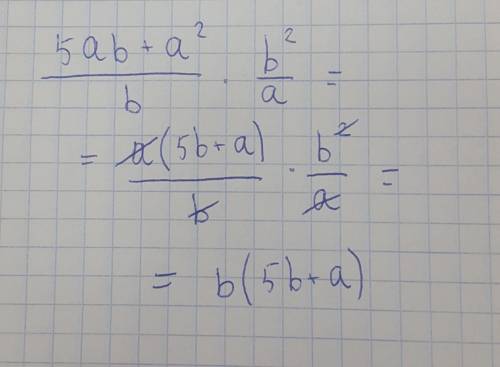 (5ab + a²)/b · b²/a =
= a(5b + a)/b · b²/a =
= b(5b + a)